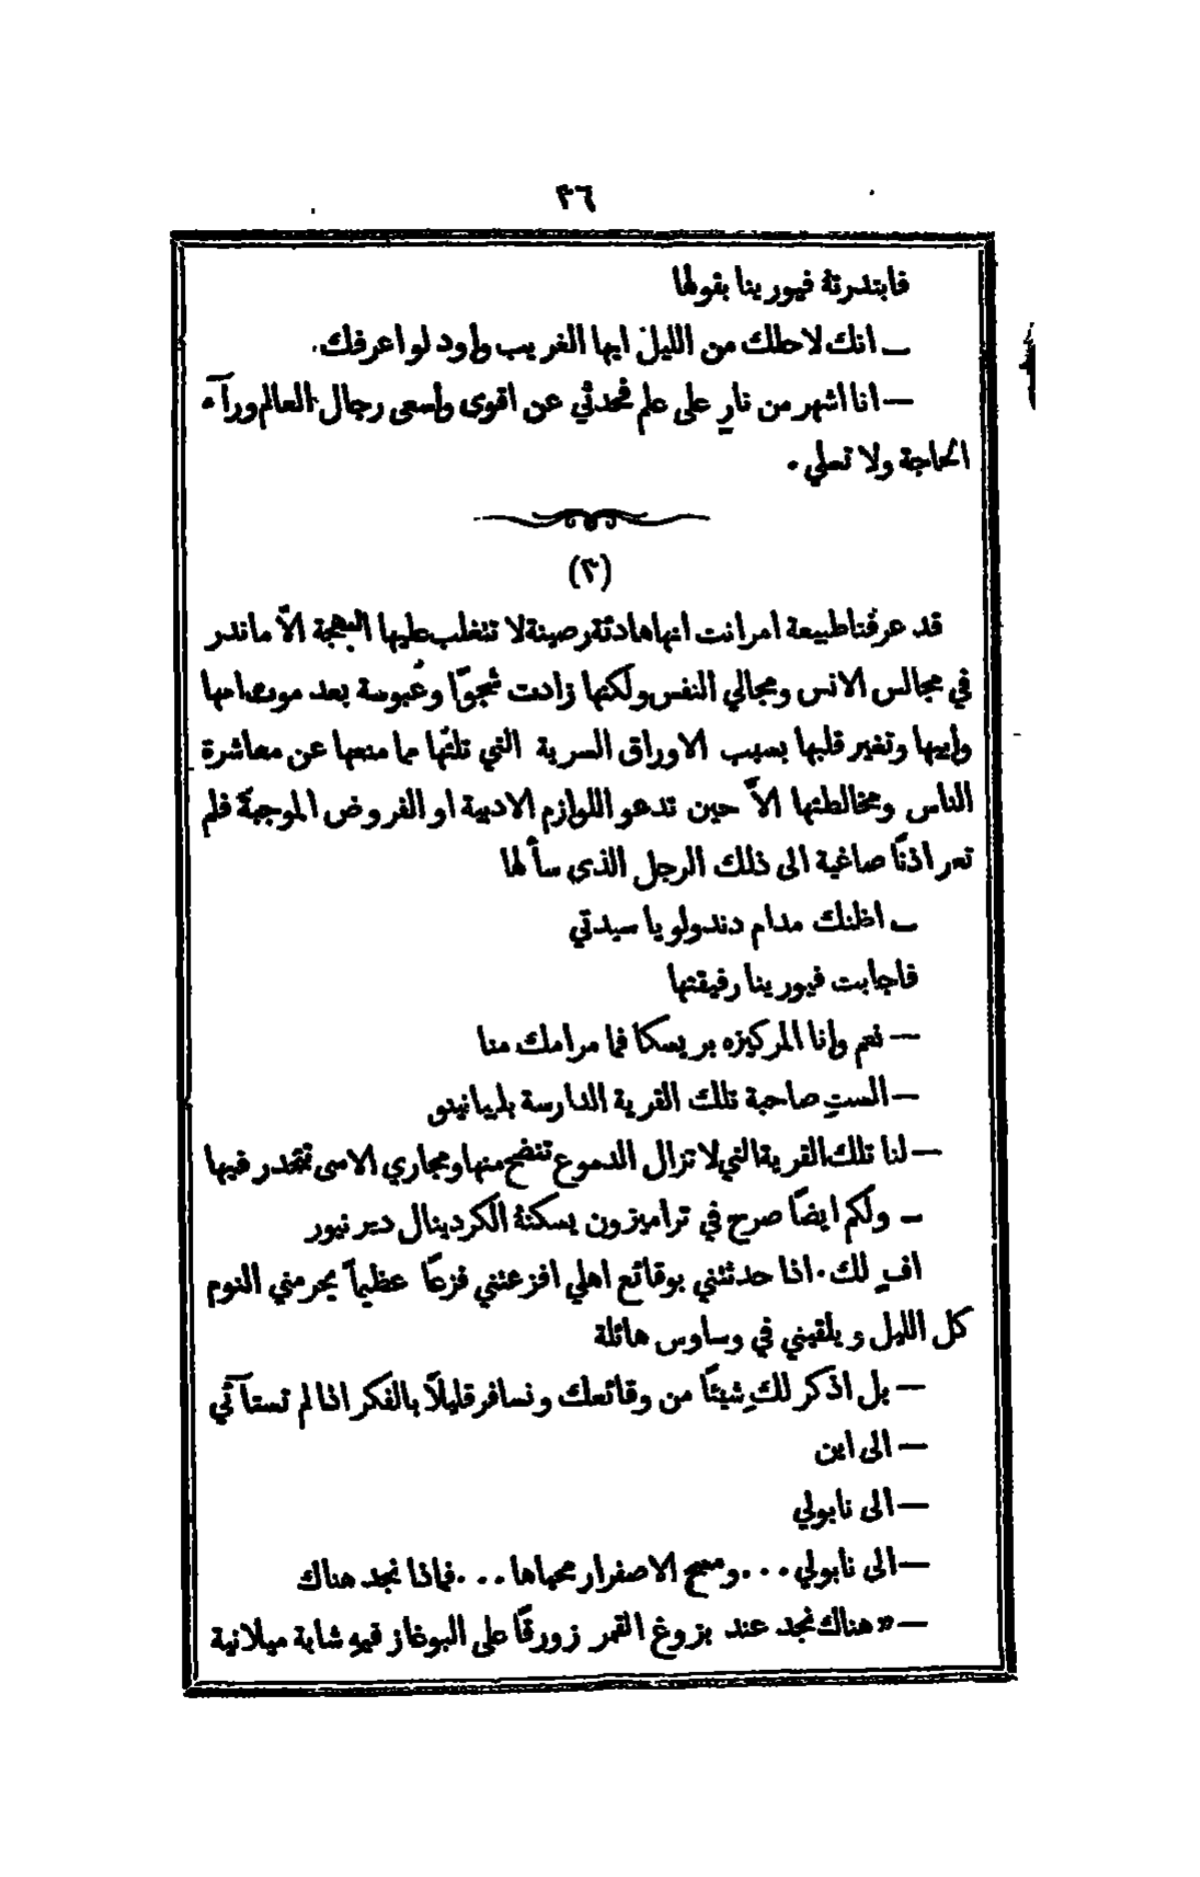 ٣٦
فابتدرتهُ فيورينا بقولها
ـ انك لاحطلك من الليل ايها الغريب واود لو اعرفك.
— انا اشهر من نارٍ على علم فحدثي عن اقوى واسعى رجال العالم ورآء
الحاجة ولا تملي .
(٣)
قد عرفنا طبيعة امرانت انها هادئة رصينة لا تتغلب عليها البهجة الاّ ما ندر
في مجالس الانس ومجالي النفس ولكنها زادت شجوًّا وعُبوسة بعد موت امها
وابيها وتغير قلبها بسبب الاوراق السرية التي تلتْها مما منعها عن معاشرة
الناس ومخالطتها الاَّ حين تدعو اللوازم الادبية او الفروض الموجبة فلم
تعر اذنًا صاغية الى ذلك الرجل الذي سألها
ـ اظنك مدام دندولو يا سيدتي
فاجابت فيورينا رفيقتها
— نعم وانا المركيزه بريسكا فما مرامك منا
— الستِ صاحبة تلك القرية الدارسة بلميانينو
— لنا تلك القرية التي لا تزال الدموع تنضح منها ومجاري الاسى تتحدر فيها
ـ ولكم ايضًا صرح في تراميزون يسكنهُ الكردينال ديرنيور
افٍ لك. اذا حدثتني بوقائع اهلي افزعتني فزعًا عظيماً يحرمني النوم
كل الليل ويلقيني في وساوس هائلة
— بل اذكر لكِ شيئًا من وقائعك ونسافر قليلاً بالفكر اذا لم تستآئي
— الى اين
— الى نابولي
— الى نابولي . . . ومسح الاصفرار محياها . . . فماذا نجد هناك
— « هناك نجد عند بزوغ القمر زورقًا على البوغاز فيهِ شابة ميلانية